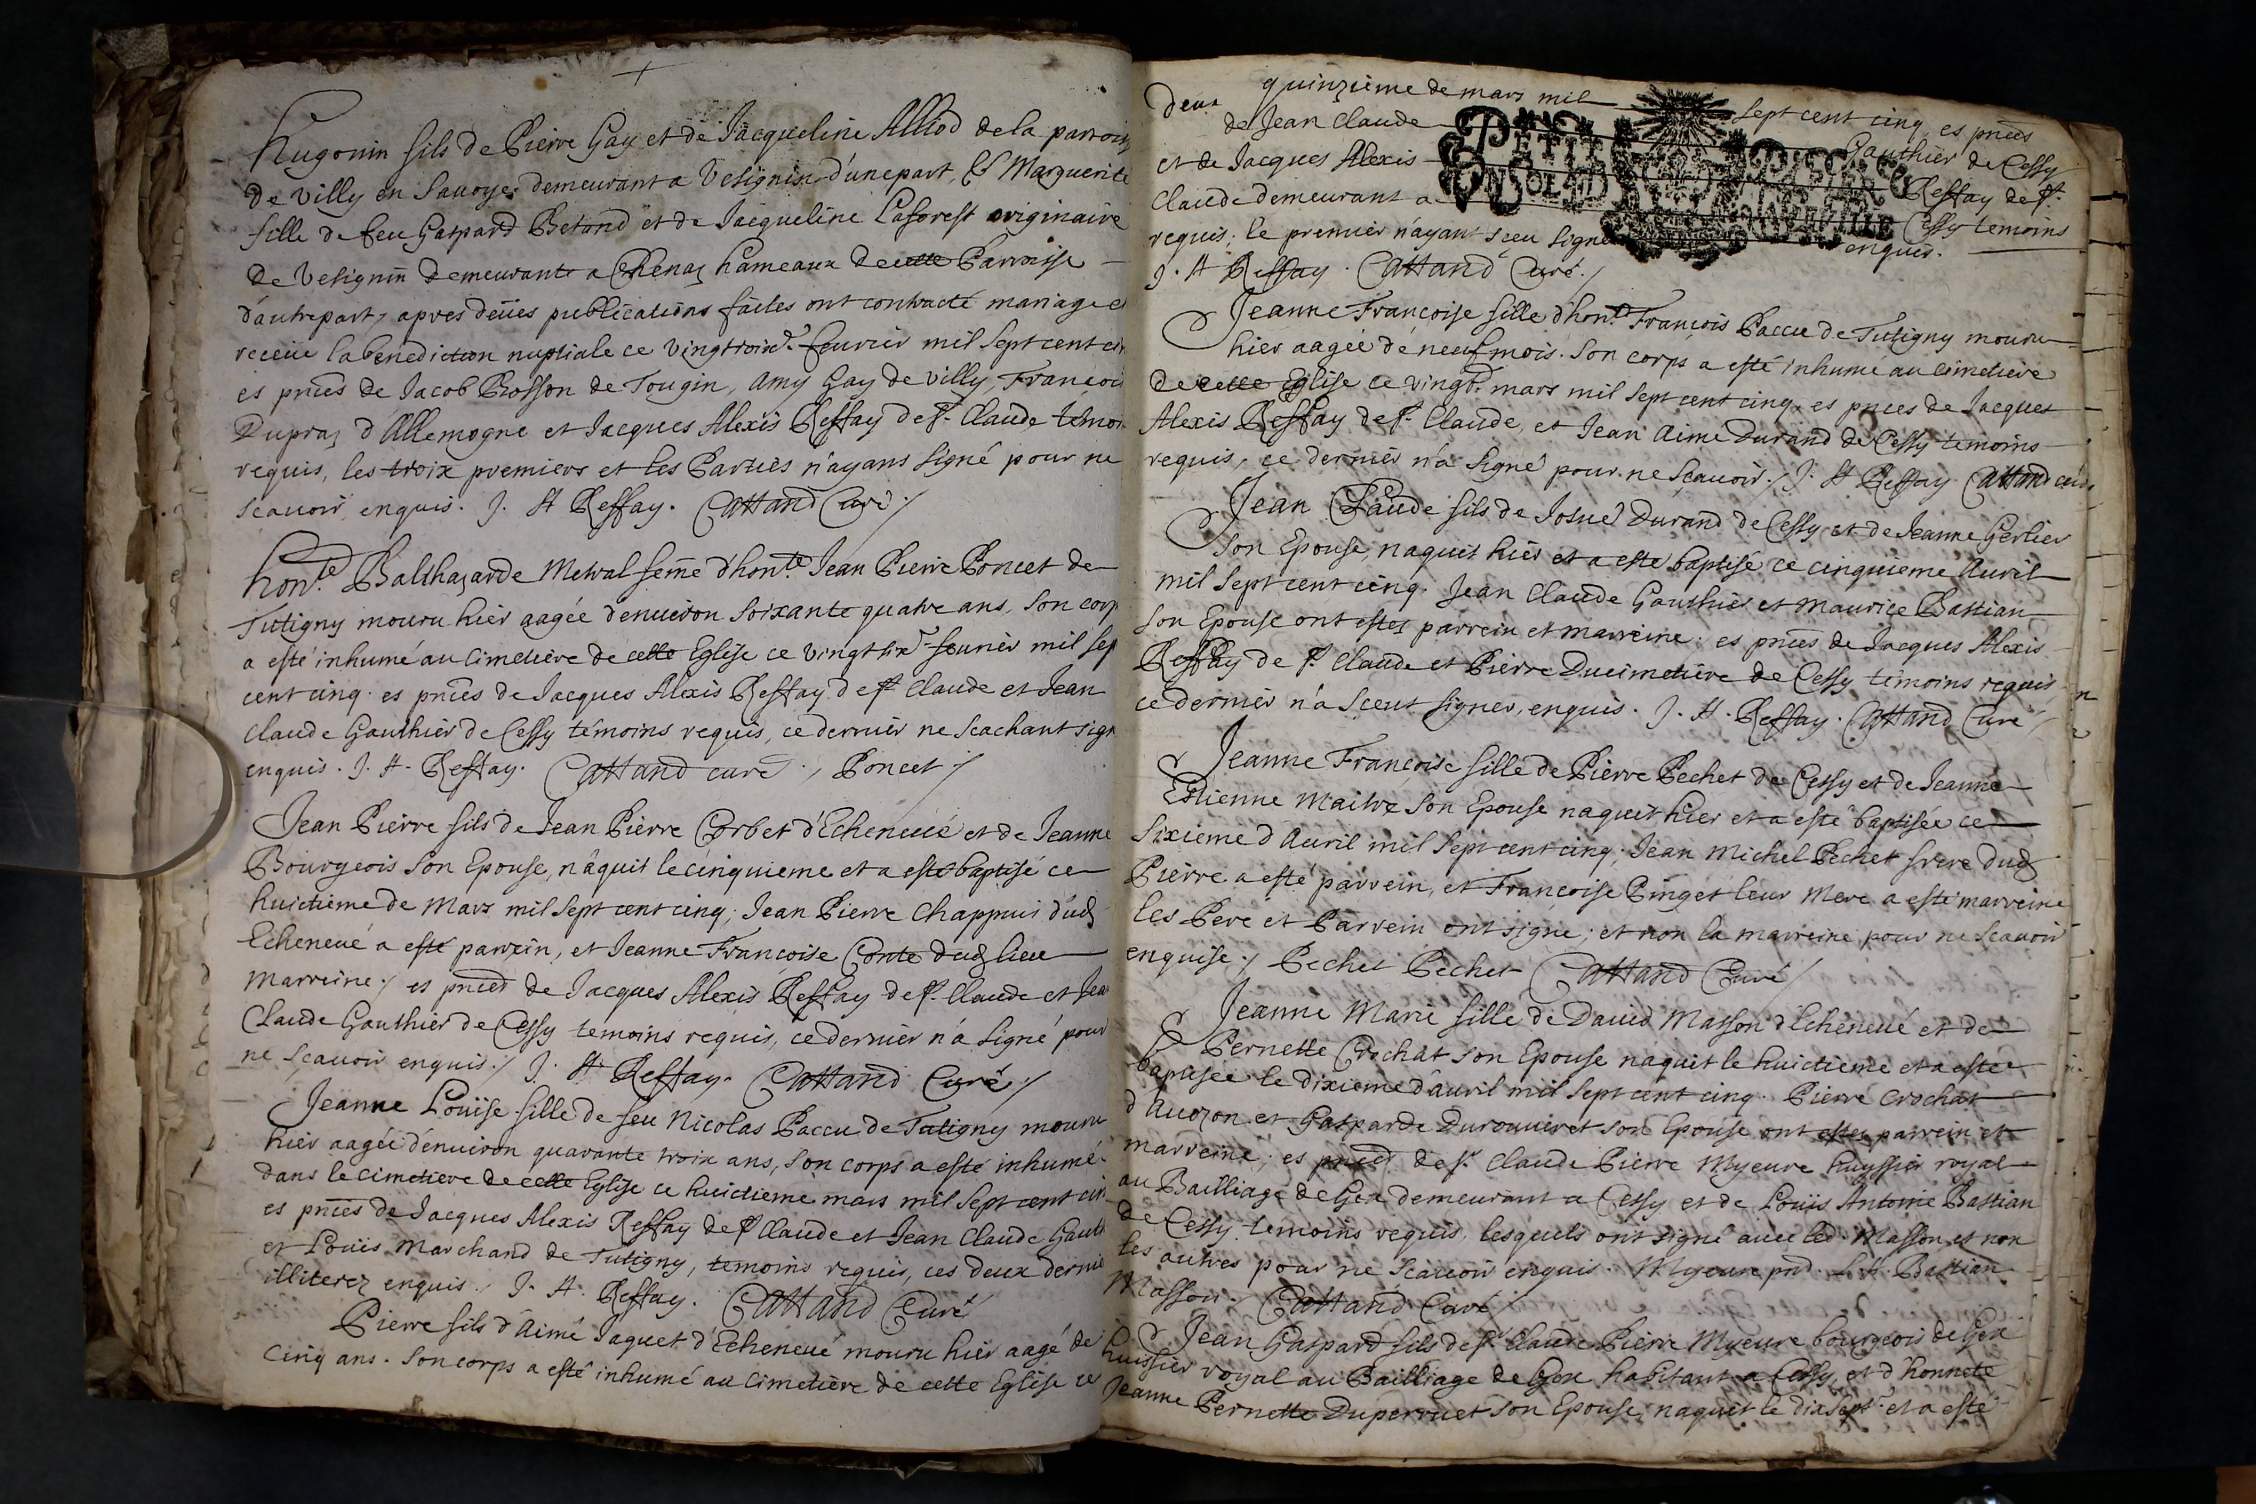 Hugonin fils de Pierre Gay et de Jacqueline Alliod de la parrois
de Villy en Savoye demeurant a Vesignin d'une part, et Marguerite
fille de feu Gaspard Betand et de Jacqueline Laforest originaire
de Vesignin demeurante a Chenaz hameaux de cette Parroisse
d'autre part, apres deües publications faites ont contracté mariage et
receüe la benediction nuptiale ce vingttroix.e feurier mil sept cent cin
es pnces de Jacob Rosson de Tougin, Amy Gay de Villy, Francois
Dupraz d'Allemogne et Jacques Alexis Reffay de st. Claude témoi
requis, les troix premiers et les Parties n'ayans signé pour ne
scauoir enquis. J. A Reffay. Cattand Curé /
hon.te Balthazarde Metral feme d'hon.te Jean Pierre Poncet de
Tutigny mouru hier aagée denuiron soixante quatre ans, son corp
a esté inhumé au cimetière de cette Eglise ce vingt six.e feurier mil sep
cent cinq. es pnces de Jacques Alexis Reffay de st Claude et Jean
claude Gauthier de Cessy témoins requis, ce dernier ne scachant sign
enquis. J. A. Reffay. Cattand curé ./ Poncet /
Jean Pierre fils de Jean Pierre Corbet d'Echeneué et de Jeanne
Bourgeois son Epouse, nâquit le cinquieme et a esté baptisé ce
huictieme de Mars mil sept cent cinq; Jean Pierre Chappuis dud
Echeneué a esté parrein, et Jeanne Francoise Conte dud lieu
marreine./ es pnces de Jacques Alexis Reffay de st. Claude et Jea
Claude Gauthier de Cessy temoins requis, ce dernier n'a signé pour
ne scauoir enquis./ J. A Reffay. Cattand Curé /
Jeanne Loüise fille de feu Nicolas Paccu de Tutigny mouru
hier aagée d'enuiron quarante troix ans, son corps a esté inhumé
dans le cimetiere de cette Eglise ce huictieme mars mil sept cent cin
es pnces de Jacques Alexis Reffay de st Claude et Jean Claude Gauth
et Loüis Marchand de Tutigny, temoins requis, ces deux dernie
illiterez enquis. J. A. Reffay. Cattand Curé
Pierre fils d'Aimé Jaquet d'Echeneué mouru hier aagé de
cinq ans. son corps a esté inhumé au cimetière de cette Eglise ce
quinzieme de mars mil sept cent cinq, es pnces
de Jean Claude Gauthier de Cessy
et de Jacques Alexis Reffay de st.
Claude demeurant a Cessy temoins
requis; le premier n'ayant sceu signe enquis.
PETIT PAPIER
J. A Reffay. Cattand Curé./
Jeanne Francoise fille d'hon.te Francois Paccu de Tutigny mouru
hier aagée de neuf mois. son corps a esté inhumé au cimetiere
de cette Eglise ce vingt.e mars mil sept cent cinq, es pnces de Jacques
Alexis Reffay de st. Claude, et Jean Aimé Durand de Cessy temoins
requis, ce dernier n'a signé pour ne scauoir./ J. A Reffay Cattand curé
Jean Claude fils de Josué Durand de Cessy et de Jeanne Gerlier
son Epouse, naquit hier et a esté baptisé ce cinquieme Auril
mil sept cent cinq. Jean Claude Gauthier et Maurice Bastian
son Epouse ont estez parrein et marreine. es pnces de Jacques Alexis
Reffay de st. Claude et Pierre Ducimetiere de Cessy témoins requis
ce dernier n'a sceut signer, enquis. J. A. Reffay. Cattand Curé /
Jeanne Francoise fille de Pierre Pechet de Cessy et de Jeanne
Estienne Maitre son Epouse naquit hier et a esté baptisée ce
sixieme d'Auril mil sept cent cinq; Jean Michel Pechet frere dud
Pierre a esté parrein, et Francoise Pinget leur Mere a esté marreine
les Pere et Parrein ont signé; et non la marreine pour ne scauoir
enquise./ Pechet Pechet Cattand Curé /
Jeanne Marie fille de Dauid Masson d'Echeneué et de
Pernette Crochat son Epouse naquit le huictieme et a esté
baptisée le dixieme d'auril mil sept cent cinq. Pierre Crochat
d'Auozon et Gasparde Durouuenet son Epouse ont estez parrein et
marreine; es pnces de st. Claude Pierre Myeure huyssier royal
au Bailliage de Gex demeurant a Cessy et de Loüis Antoine Bastian
de Cessy temoins requis, lesquels ont signé auec led. Masson et non
les autres pour ne scauoir enquis. Myeure pnt. L. A. Bastian
Masson. / Cattand Curé /
Jean Gaspard fils de sr Claude Pierre Myeure bourgeois de Gex
huissier royal au Bailliage de Gex habitant a Cessy, et d'honnete
Jeanne Pernette Duperruet son Epouse, naquit le dixsept.e et a esté